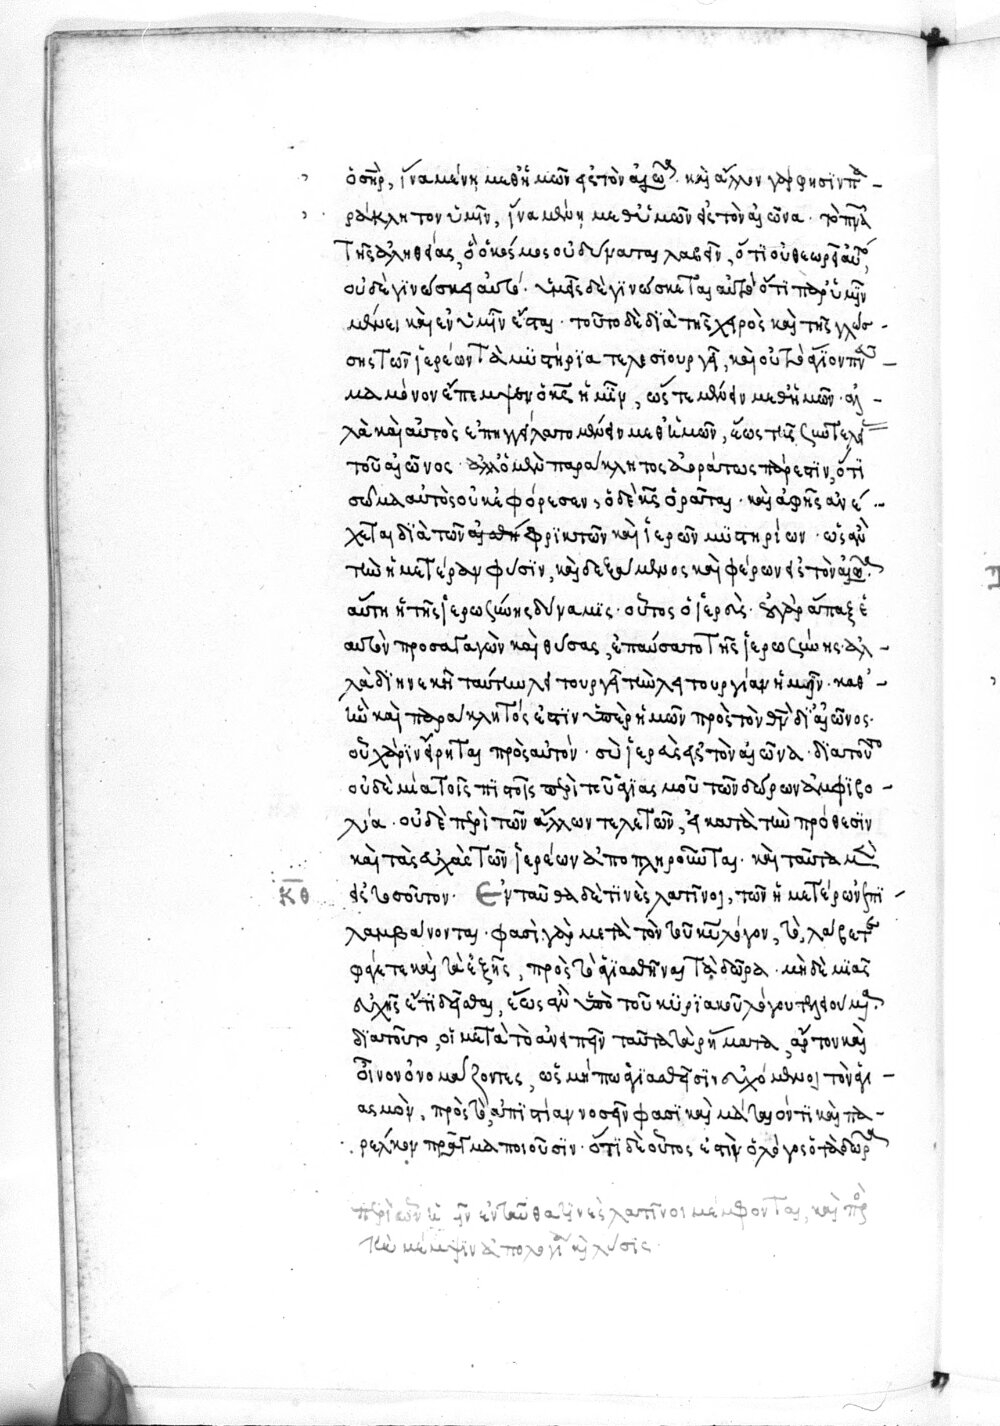 ὁ σὴρ, ἵνα μένῃ μεθ' ἡμῶν εἰς τὸν αἰῶνα· καὶ ἄλλον γάρ φησϊν πα-
ράκλητον ὑμῖν, ἵνα μένῃ μεθ' ὑμῶν εἰς τὸν αἰῶνα· τὸ πνα
τῆς ἀληθείας, ὃ ὁ κόσμος οὐ δύναται λαβεῖν, ὅτϊ οὐ θεωρεῖ αὐτὸ,
οὐδὲ γϊνώσκει αὐτό· ὑμεῖς δὲ γϊνώσκεται αὐτὸ ὅτϊ παρ' ὑμῖν
μένει καὶ ἐν ὑμῖν ἔσται· τοῦτο δὲ δϊὰ τῆς χειρὸς καὶ τῆς γλώσ-
σης τῶν ἱερέων τὰ μϋστήρϊα τελεσϊουργεῖ, καὶ οὐ τὸ ἅγϊον πνεῦ-
μα μόνον ἔπεμψεν ὁ κς ἡμῖν, ὥστε μένειν μεθ' ἡμῶν· ἀλ-
λὰ καὶ αὐτὸς ἐπηγγείλατο μένειν μεθ' ἡμῶν, ἕως τῆς συντελεί
τοῦ αἰῶνος· ἀλλ' ὁ μὲν παράκλητος ἀοράτως πάρεστϊν, ὅτϊ
σῶμα αὐτὸς οὐκ ἐφόρεσεν, ὁ δὲ κς ὁρᾶται· καὶ ἀφῆς ἀνέ-
χεται δϊὰ τῶν φρϊκτῶν καὶ ἱερῶν μϋστηρίων· ὡς ἂν
τὴν ἡμετέραν φύσϊν, καὶ δεξάμενος καὶ φέρων εἰς τὸν αἰῶνα·
αὕτη ἡ τῆς ἱερωσύνης δύναμϊς· οὗτος ὁ ἱερεὺς· οὐ γὰρ ἅπαξ ἑ
αυτὸν προσαγαγὼν καὶ θύσας, ἐπαύσατο τῆς ἱερωσύνης· ἀλ-
λὰ δϊηνεκῆ ταύτην λειτουργεῖ τὴν λειτουργίαν ἡμῖν· καθ'-
ἣν καὶ παράκλητός ἐστϊν ὑπὲρ ἡμῶν πρὸς τὸν θν δϊ' αἰῶνος·
οὗ χάρϊν εἴρηται πρὸς αὐτόν· σὺ ἱερεὺς εἰς τὸν αἰῶνα· δϊὰ τοῦτο
οὐδὲ μία τοῖς πϊστοῖς περὶ τοῦ ἁγϊασμοῦ τῶν δώρων ἀμφϊβο-
λία· οὐδὲ περὶ τῶν ἄλλων τελετῶν, εἰ κατὰ τὴν πρόθεσϊν
καὶ τὰς εὐχὰς τῶν ἱερέων ἀποπληροῦται· καὶ ταῦτα μὲν
εἰς τοσοῦτον· Ἐνταῦθα δὲ τϊνὲς λατῖνοι, τῶν ἡμετέρων ἐπϊ-
κθ
λαμβάνονται· φασὶ γὰρ μετὰ τὸν τοῦ κυ λόγον, τὸ, λάβετε
φάγετε καὶ τὰ ἑξῆς, πρὸς τὸ ἁγϊασθῆναι τὰ δῶρα· μηδὲ μϊᾶς
εὐχῆς ἔτϊ δεῖσθαι, ἕως ἂν ὑπὸ τοῦ κϋρϊακοῦ λόγου τελούμενα·
δϊὰ τοῦτο, οἱ μετὰ τὸ ἀνειπεῖν ταῦτα τὰ ῥήματα, ἄρτον καὶ
οἶνον ὀνομάζοντες, ὡς μήπω ἁγϊασθεῖσϊν εὐχόμενοι τὸν ἁγϊ-
ασμὸν, πρὸς τὸ, ἀπϊστίαν νοσεῖν φασϊ καὶ μάταϊόν τϊ καὶ πα-
ρέλκον πρᾶγμα ποιοῦσϊν· ὅτϊ δὲ οὗτος ἐστὶν ὁ λόγος ὁ τὰ δῶρα
περὶ ὧν ἡμῖν ἐνταῦθα τϊνὲς λατῖνοι μέμφονται, καὶ πρὸς
τὴν μέμψιν ἀπολογία καὶ λύσϊς·